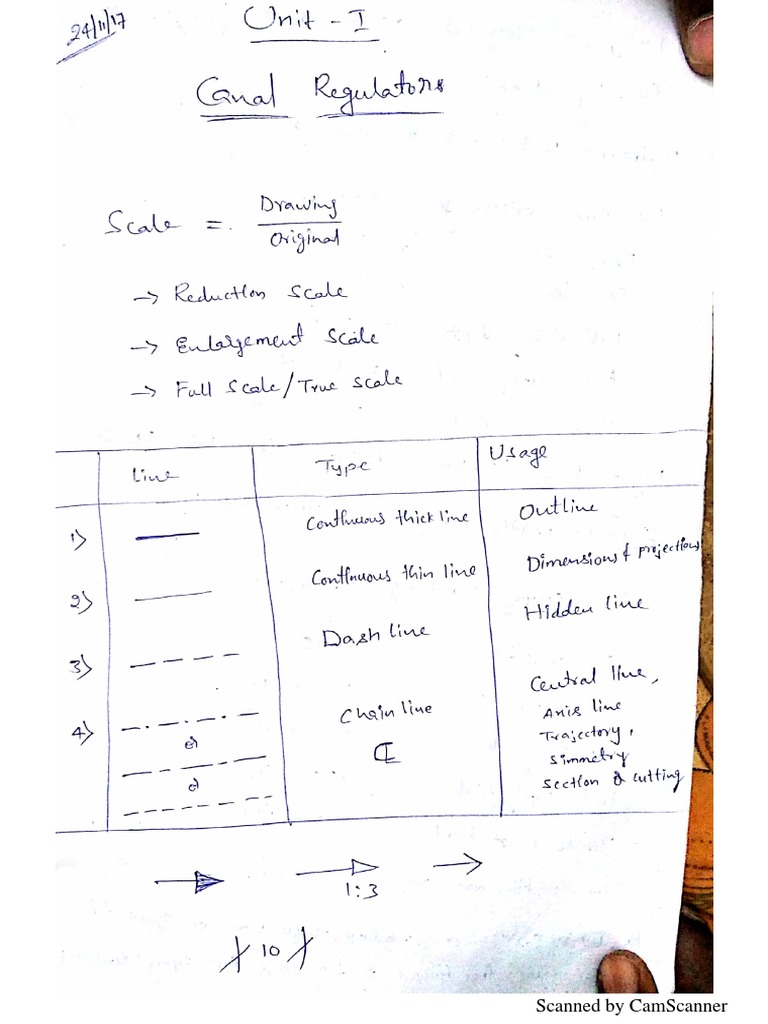 24/11/17
Unit - I
Canal Regulators
Scale = Drawing
Original
→ Reduction Scale
→ Enlargement Scale
→ Full Scale/True Scale
Line Type Usage
1) Continuous thick line Outline
2) Continuous thin line Dimensions & projections
3) Dash line Hidden line
4) Chain line Central line,
Axis line
Trajectory,
Simmetry
Section & cutting
1:3
10
Scanned by CamScanner